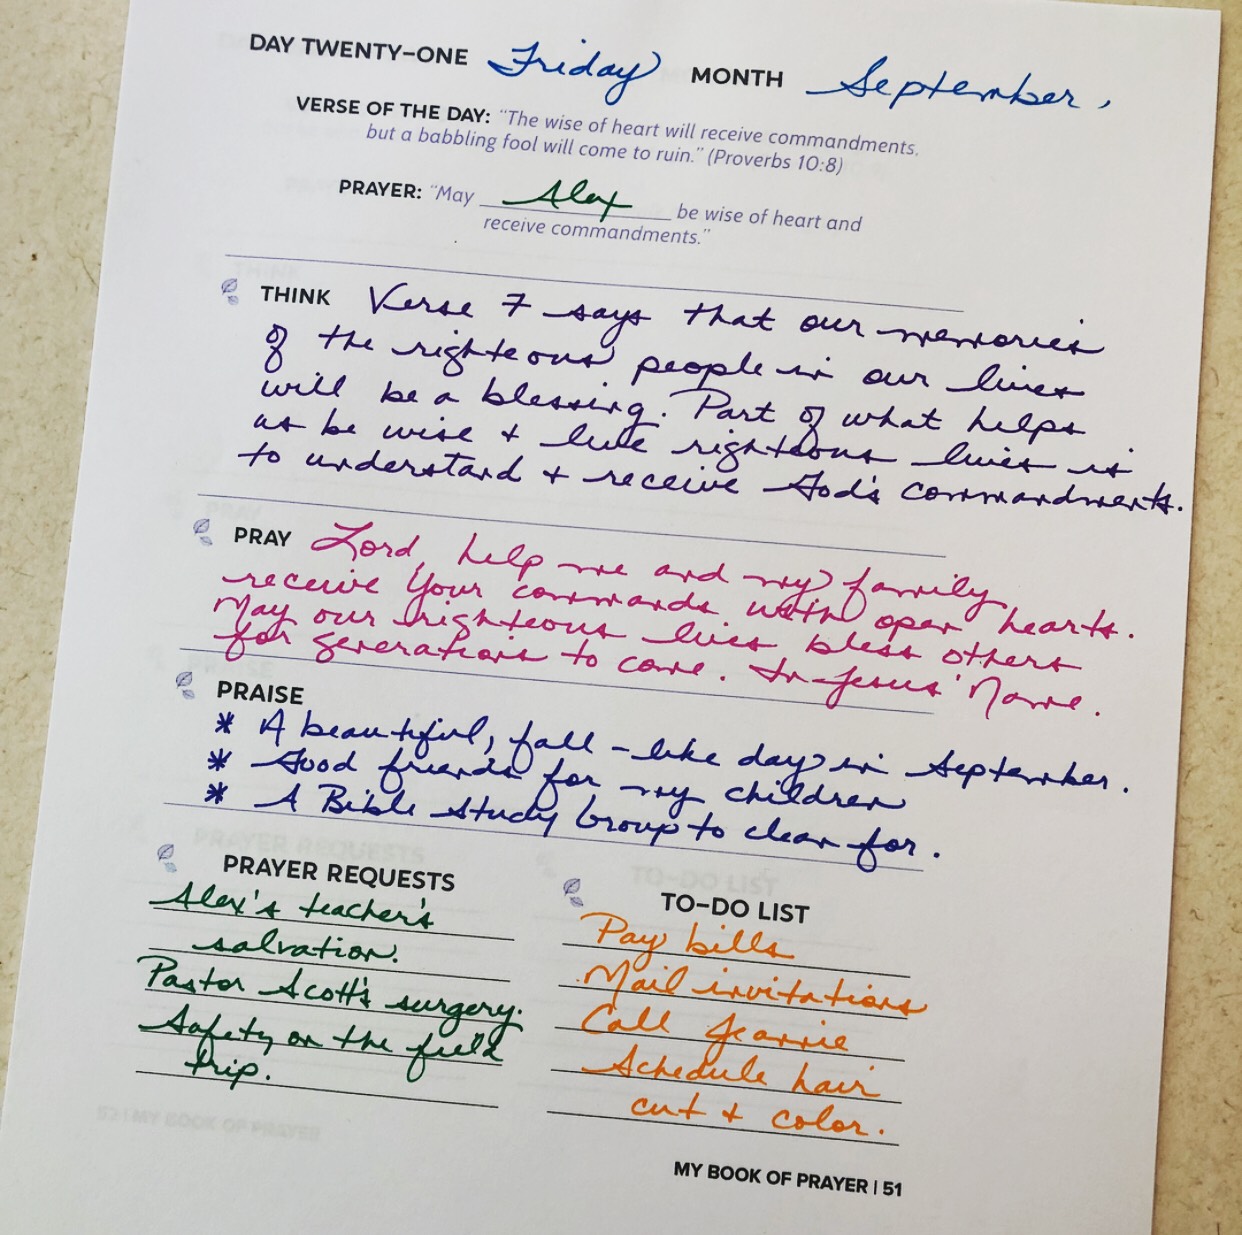 DAY TWENTY-ONE Friday MONTH September,
VERSE OF THE DAY: "The wise of heart will receive commandments,
but a babbling fool will come to ruin." (Proverbs 10:8)
PRAYER: "May Alex be wise of heart and
receive commandments."
THINK Verse 7 says that our memories
of the righteous people in our lives
will be a blessing. Part of what helps
us be wise + live righteous lives is
to understand + receive God's commandments.
PRAY Lord, help me and my family
receive Your commands with open hearts.
May our righteous lives bless others
for generations to come. In Jesus' Name.
PRAISE
* A beautiful, fall-like day in September.
* Good friends for my children
* A Bible Study Group to clean for.
PRAYER REQUESTS
Alex's teacher's
salvation.
Pastor Scott's surgery.
Safety on the field
trip.
TO-DO LIST
Pay bills
Mail invitations
Call Jeannie
Schedule hair
cut + color.
MY BOOK OF PRAYER | 51